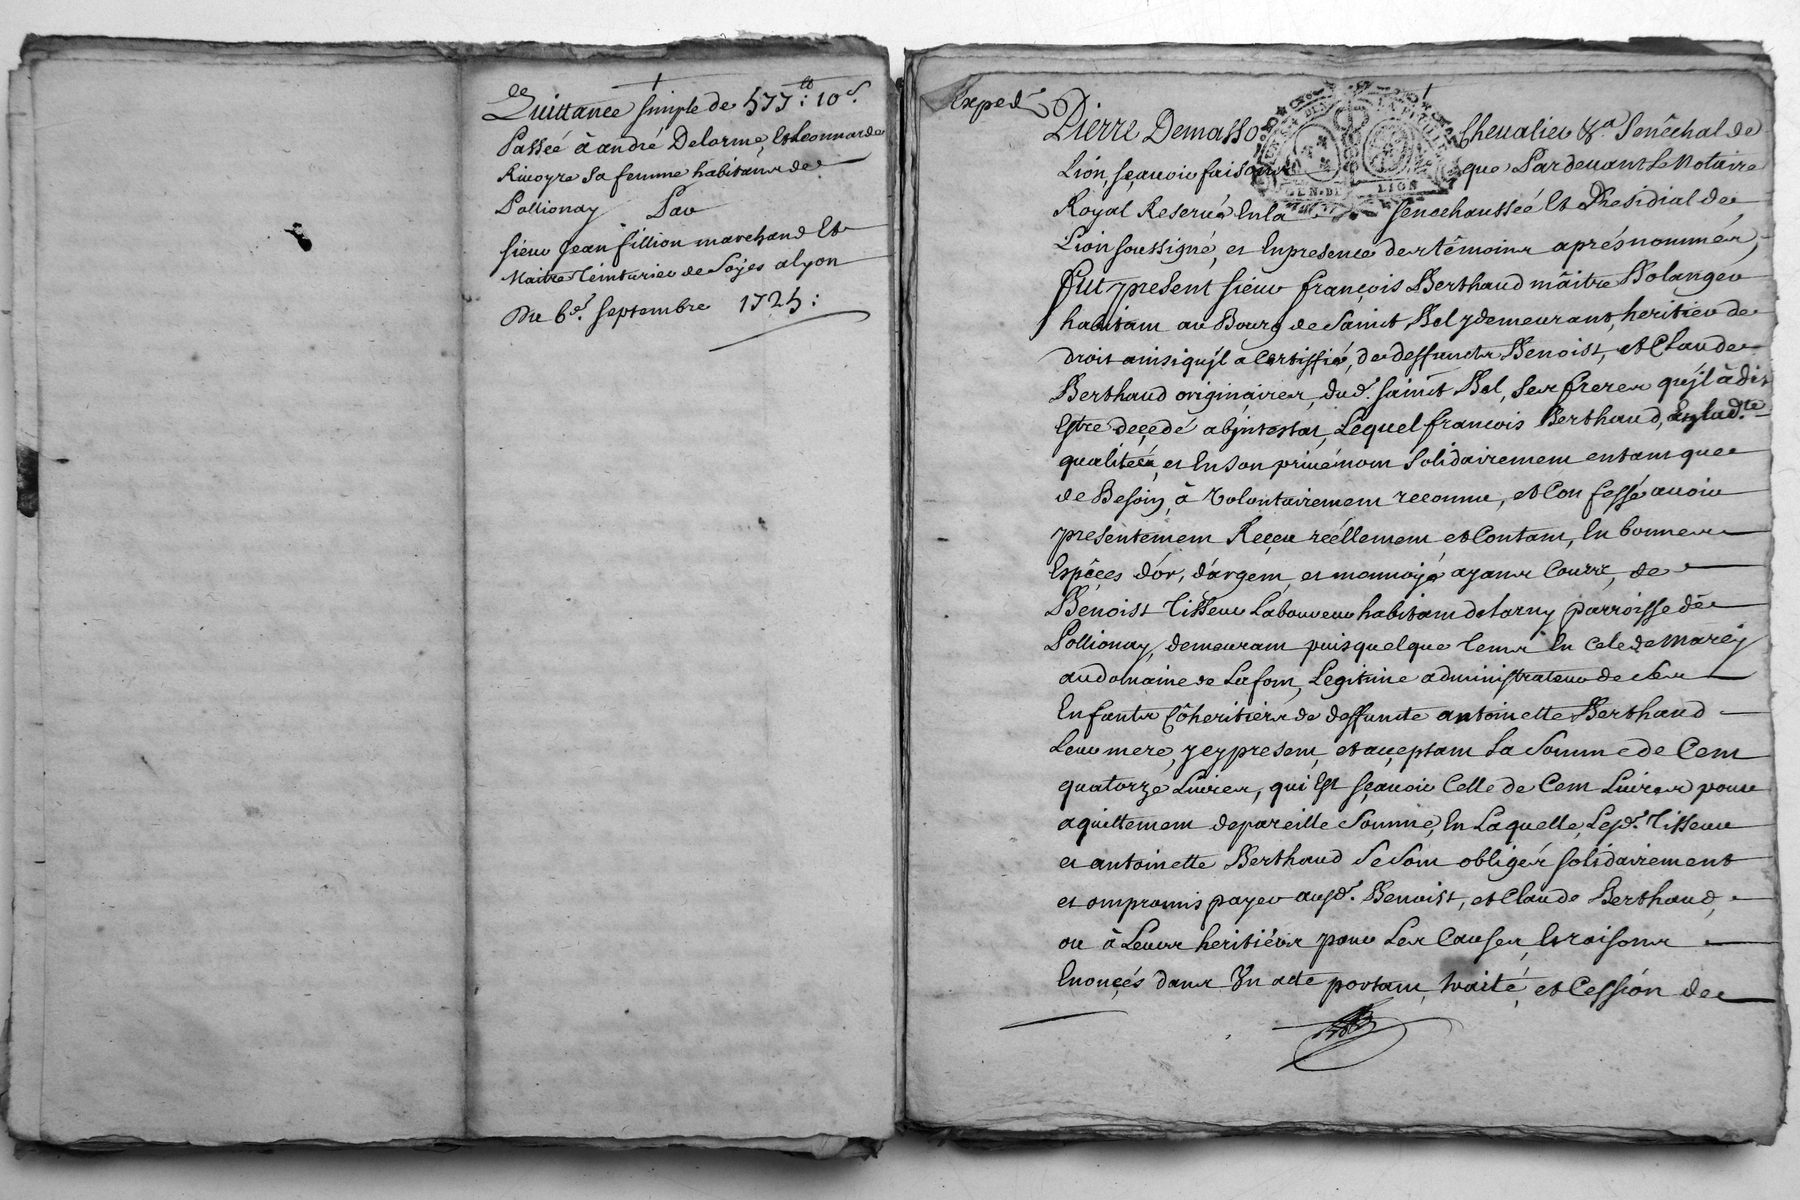 de
Quittance simple de 577 lt: 10 s.
Passée à andré Delorme, et Leonnarde
Riuoyre Sa femme habitans de
Pollionay Par
sieur jean fillion marchand Et
Maitre Teinturier de Soÿes a lyon
Du 6e. septembre 1725:
Exped
Pierre Demasso Cheualier &a Senêchal de
Lion, sçauoir faisons que Pardeuant Le Notaire
Royal Reserué En la Senechaussée Et Presidial de
Lion soussigné, et En presence des têmoins aprés nommés,
Fut present sieur françois Berthaud mâitre Bolanger
habitant au Bourg de Sainct Bel y demeurant, heritier de
droit ainsi qu'jl a Certiffié, de deffuncts Benoist, et Claude
Berthaud originaires, dud. sainct Bel, ses freres qu'jl à dit
Estre deçedé abjntestat, Lequel francois Berthaud, En lad.te
qualiteé, et En son priué nom solidairement en tant que
de Besoin, à Volontairement reconnu, et Confessé auoir
presentement Reçeu réellement et Contant, En bonnes
Espêçes d'or, d'argent, et monnoye ayans Cours, de
Benoist Tisseur Laboureur habitant de Larny parroisse de
Pollionay, demeurant puis quelque tems En Cele de Marcy
au domaine de Lafont, Legitime administrateur de Ses
Enfants Côheritiérs de deffuncte antoinette Berthaud
Leur mere, y cy present, et açceptant La Somme de Cent
quatorze Liures, qui Est sçauoir Celle de Cent Liures pour
aquittement de pareille Somme, En Laquelle, Lesd. Tisseur
et antoinette Berthaud Se Sont obligés solidairement
et ont promis payer ausd. Benoist, et Claude Berthaud,
ou à Leurs heritiérs pour Les Causes, Et raisons
Enonçés dans Un acte portant, traité, et Cession de
GEN. DE LION